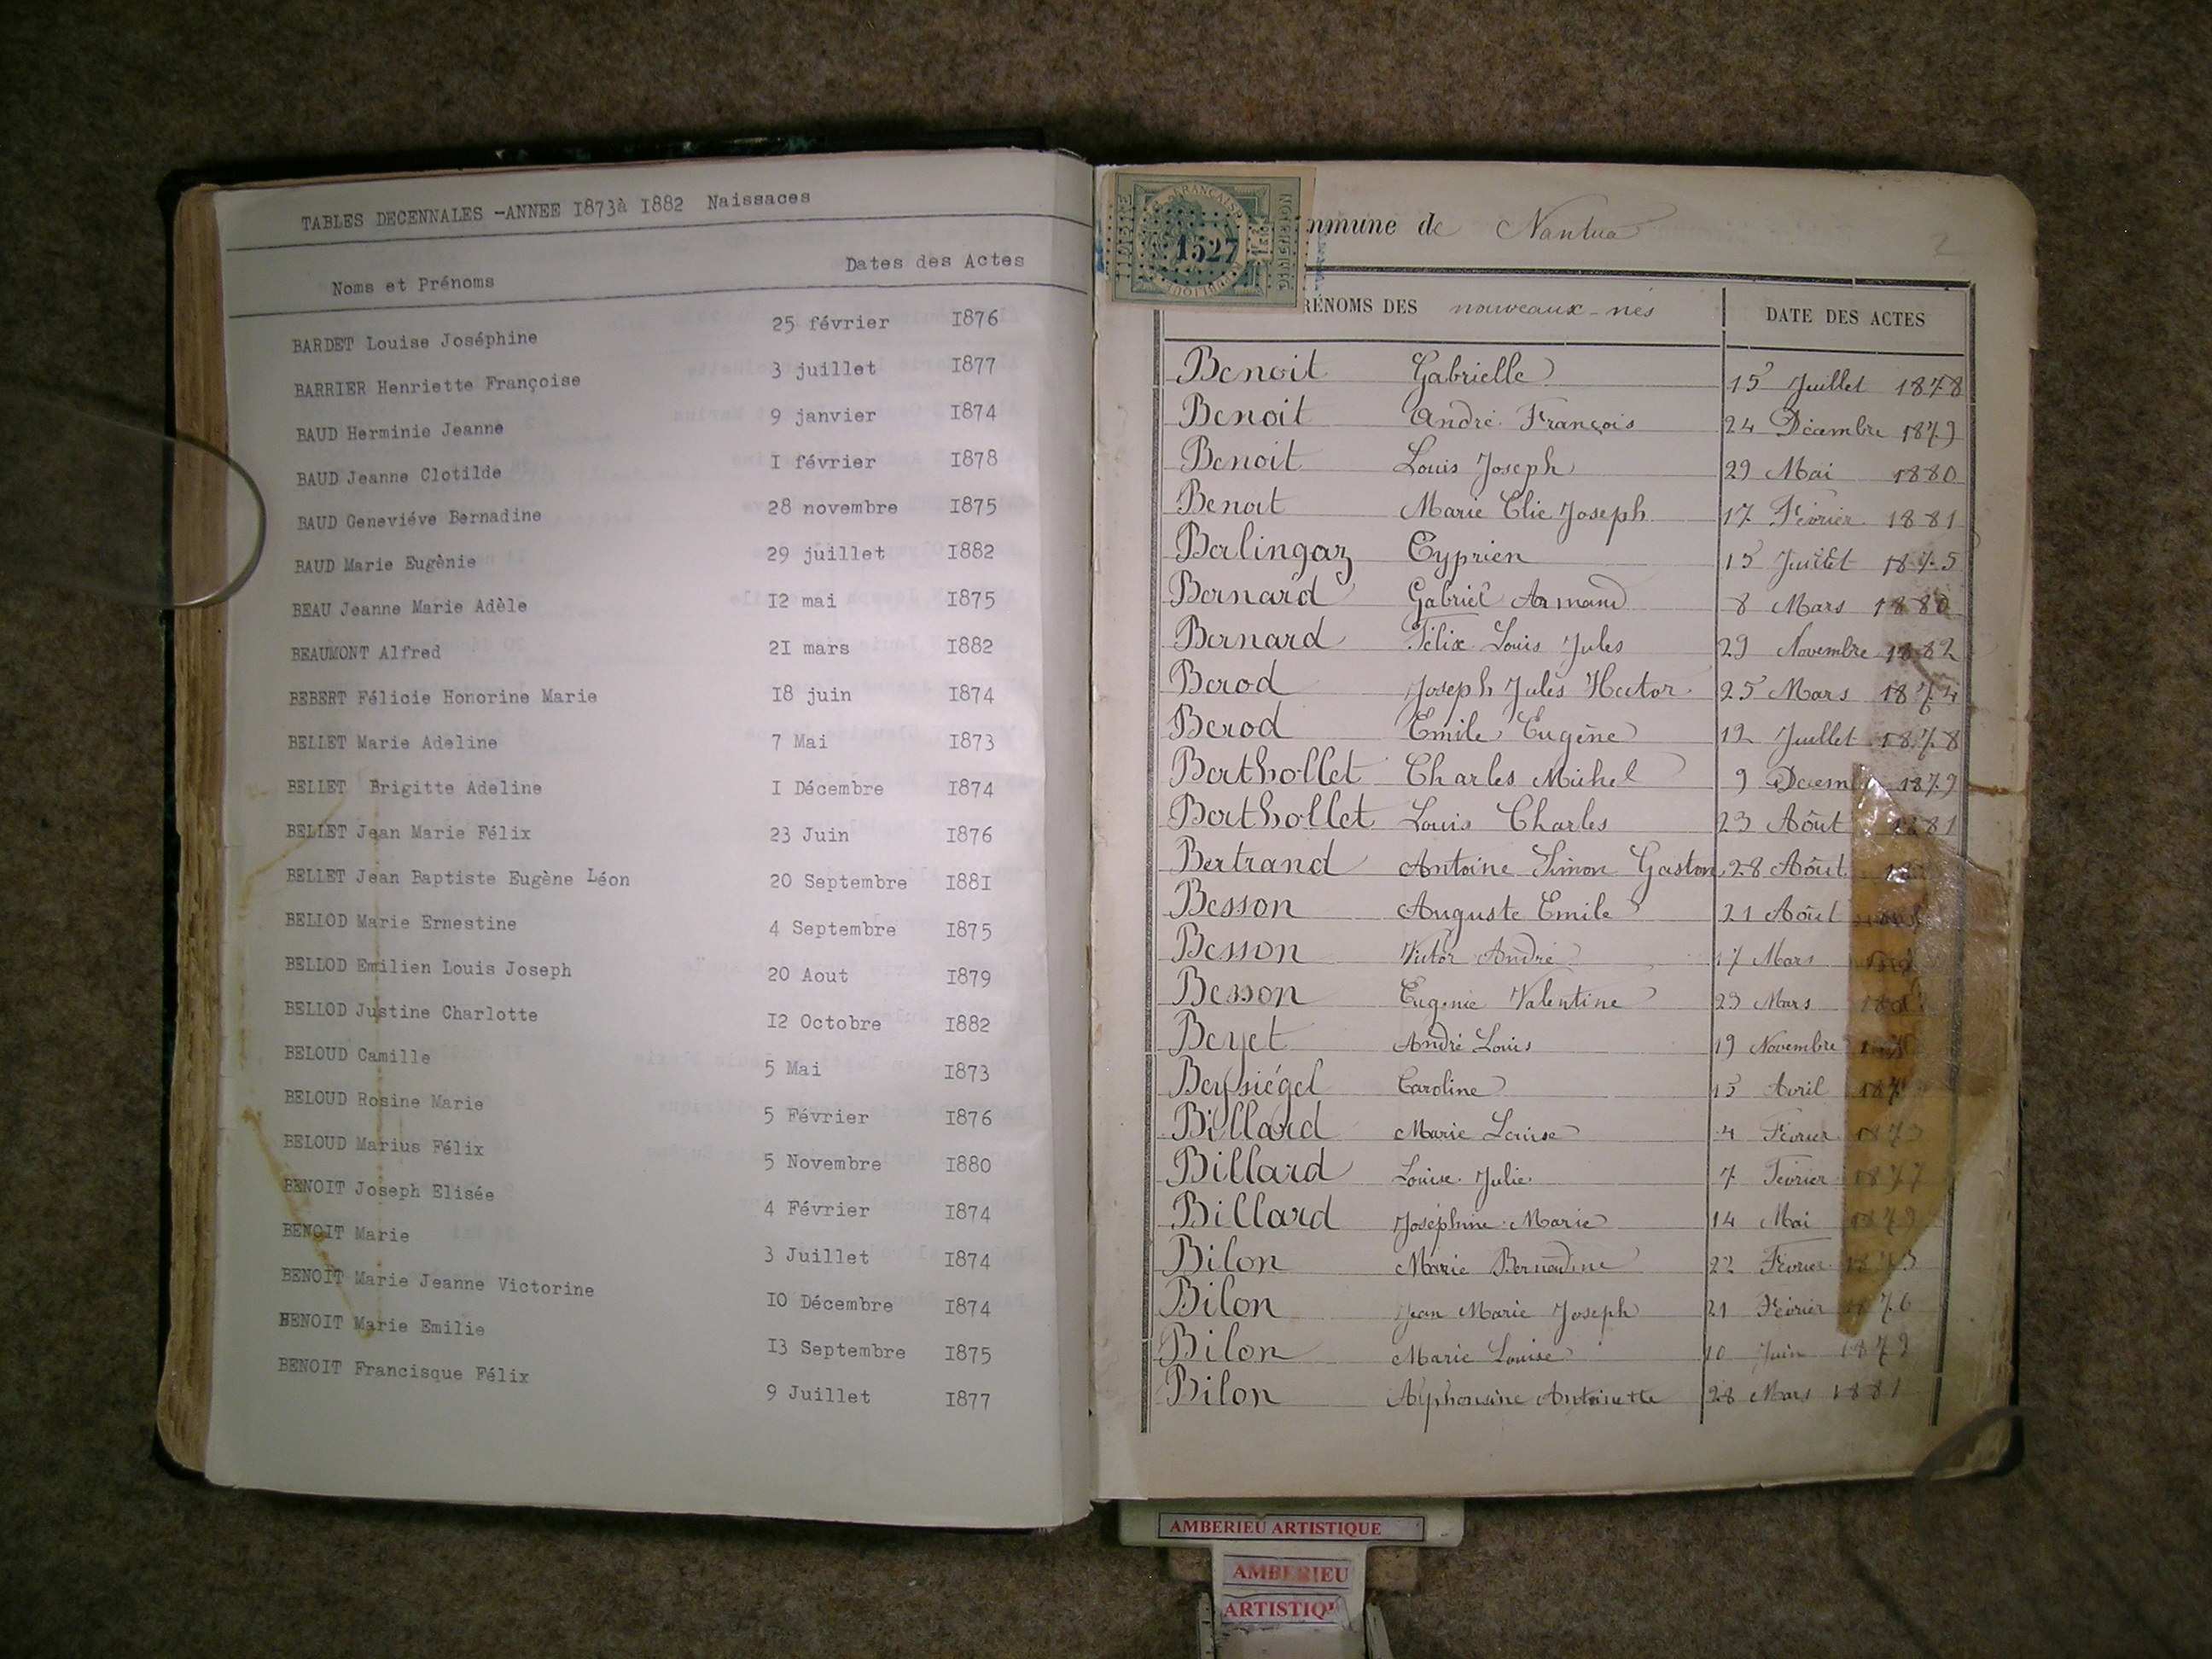 TABLES DECENNALES -ANNEE I873à I882 Naissaces
Noms et Prénoms Dates des Actes
BARDET Louise Joséphine 25 février I876
BARRIER Henriette Françoise 3 juillet I877
BAUD Herminie Jeanne 9 janvier I874
BAUD Jeanne Clotilde I février I878
BAUD Geneviéve Bernadine 28 novembre I875
BAUD Marie Eugènie 29 juillet I882
BEAU Jeanne Marie Adèle I2 mai I875
BEAUMONT Alfred 2I mars I882
BEBERT Félicie Honorine Marie I8 juin I874
BELLET Marie Adeline 7 Mai I873
BELLET Brigitte Adeline I Décembre I874
BELLET Jean Marie Félix 23 Juin I876
BELLET Jean Baptiste Eugène Léon 20 Septembre I88I
BELLOD Marie Ernestine 4 Septembre I875
BELLOD Emilien Louis Joseph 20 Aout I879
BELLOD Justine Charlotte I2 Octobre I882
BELOUD Camille 5 Mai I873
BELOUD Rosine Marie 5 Février I876
BELOUD Marius Félix 5 Novembre I880
BENOIT Joseph Elisée 4 Février I874
BENOIT Marie 3 Juillet I874
BENOIT Marie Jeanne Victorine I0 Décembre I874
BENOIT Marie Emilie I3 Septembre I875
BENOIT Francisque Félix 9 Juillet I877
1527
mmune de Nantua
2
RÉNOMS DES nouveaux-nés DATE DES ACTES
Benoit Gabrielle 15 Juillet 1878
Benoit André François 24 Décembre 1879
Benoit Louis Joseph 29 Mai 1880
Benoit Marie Elie Joseph 17 Février 1881
Berlingaz Cyprien 15 Juillet 1875
Bernard Gabriel Armand 8 Mars 1880
Bernard Félix Louis Jules 29 Novembre 1882
Berod Joseph Jules Hector 25 Mars 1874
Berod Emile Eugène 12 Juillet 1878
Berthollet Charles Michel 9 Décemb 1879
Berthollet Louis Charles 23 Aôut 1881
Bertrand Antoine Simon Gaston 28 Aôut
Besson Auguste Emile 21 Aôut
Besson Victor André 17 Mars
Besson Eugenie Valentine 23 Mars
Beyet André Louis 19 Novembre
Beysiégel Caroline 15 Avril
Billard Marie Louise 4 Février 1873
Billard Louise Julie 7 Février 1877
Billard Joséphine Marie 14 Mai 1879
Bilon Marie Bernadine 22 Février
Bilon Jean Marie Joseph 21 Février 1876
Bilon Marie Louise 10 Juin 1879
Bilon Alphonsine Antoinette 28 Mars 1881
AMBERIEU ARTISTIQUE
AMBERIEU
ARTISTIQU